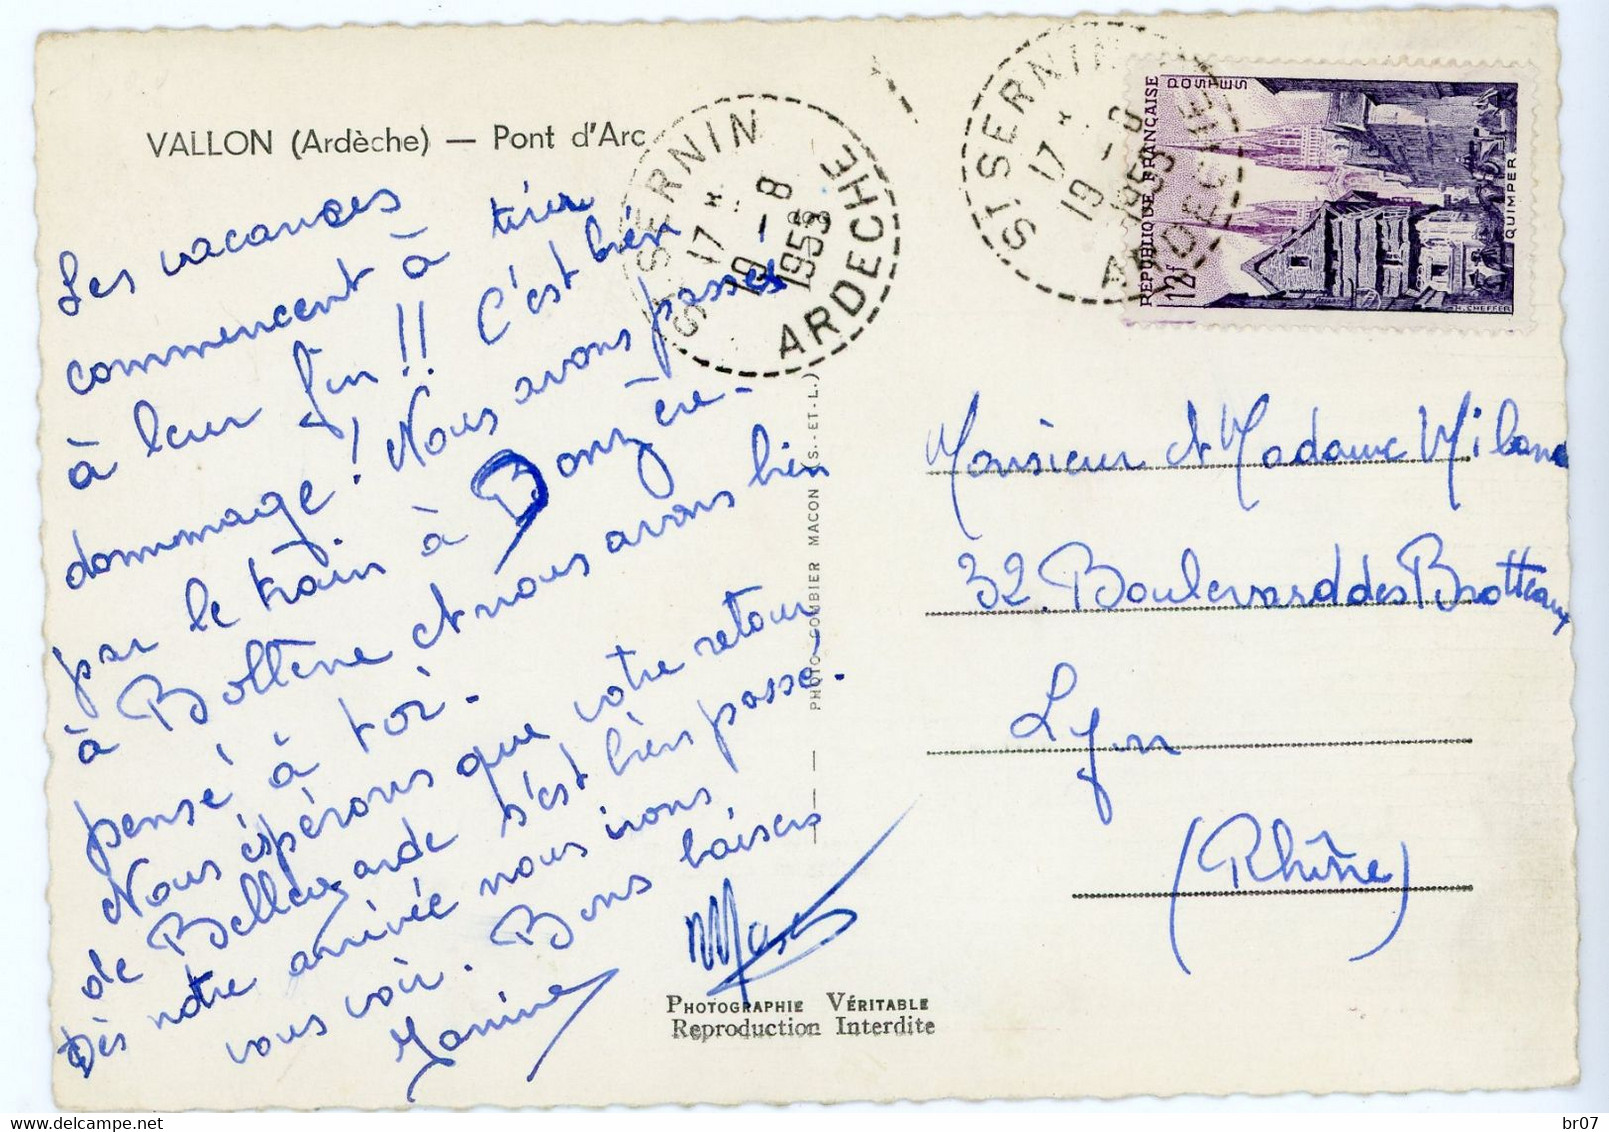 VALLON (Ardèche) — Pont d'Arc
Les vacances
commencent à tirer
à leur fin !! C'est bien
dommage ! Nous avons passés
par le train à Donzère -
à Bollène et nous avons bien
pensé à toi -
Nous espérons que votre retour
de Bellegarde s'est bien passé -
Dès notre arrivée nous irons
vous voir. Bons baisers
Janine
PHOTO COMBIER MACON (S.-ET-L.)
PHOTOGRAPHIE VÉRITABLE
Reproduction Interdite
ST SERNIN
17 *
19 - 8
1953
ARDECHE
ST SERNIN
17 *
19 - 8
1953
ARDECHE
REPUBLIQUE FRANÇAISE
POSTES
12f
QUIMPER
H. CHEFFER
Monsieur et Madame Milana
32. Boulevard des Brotteaux
Lyon
(Rhône)
br07